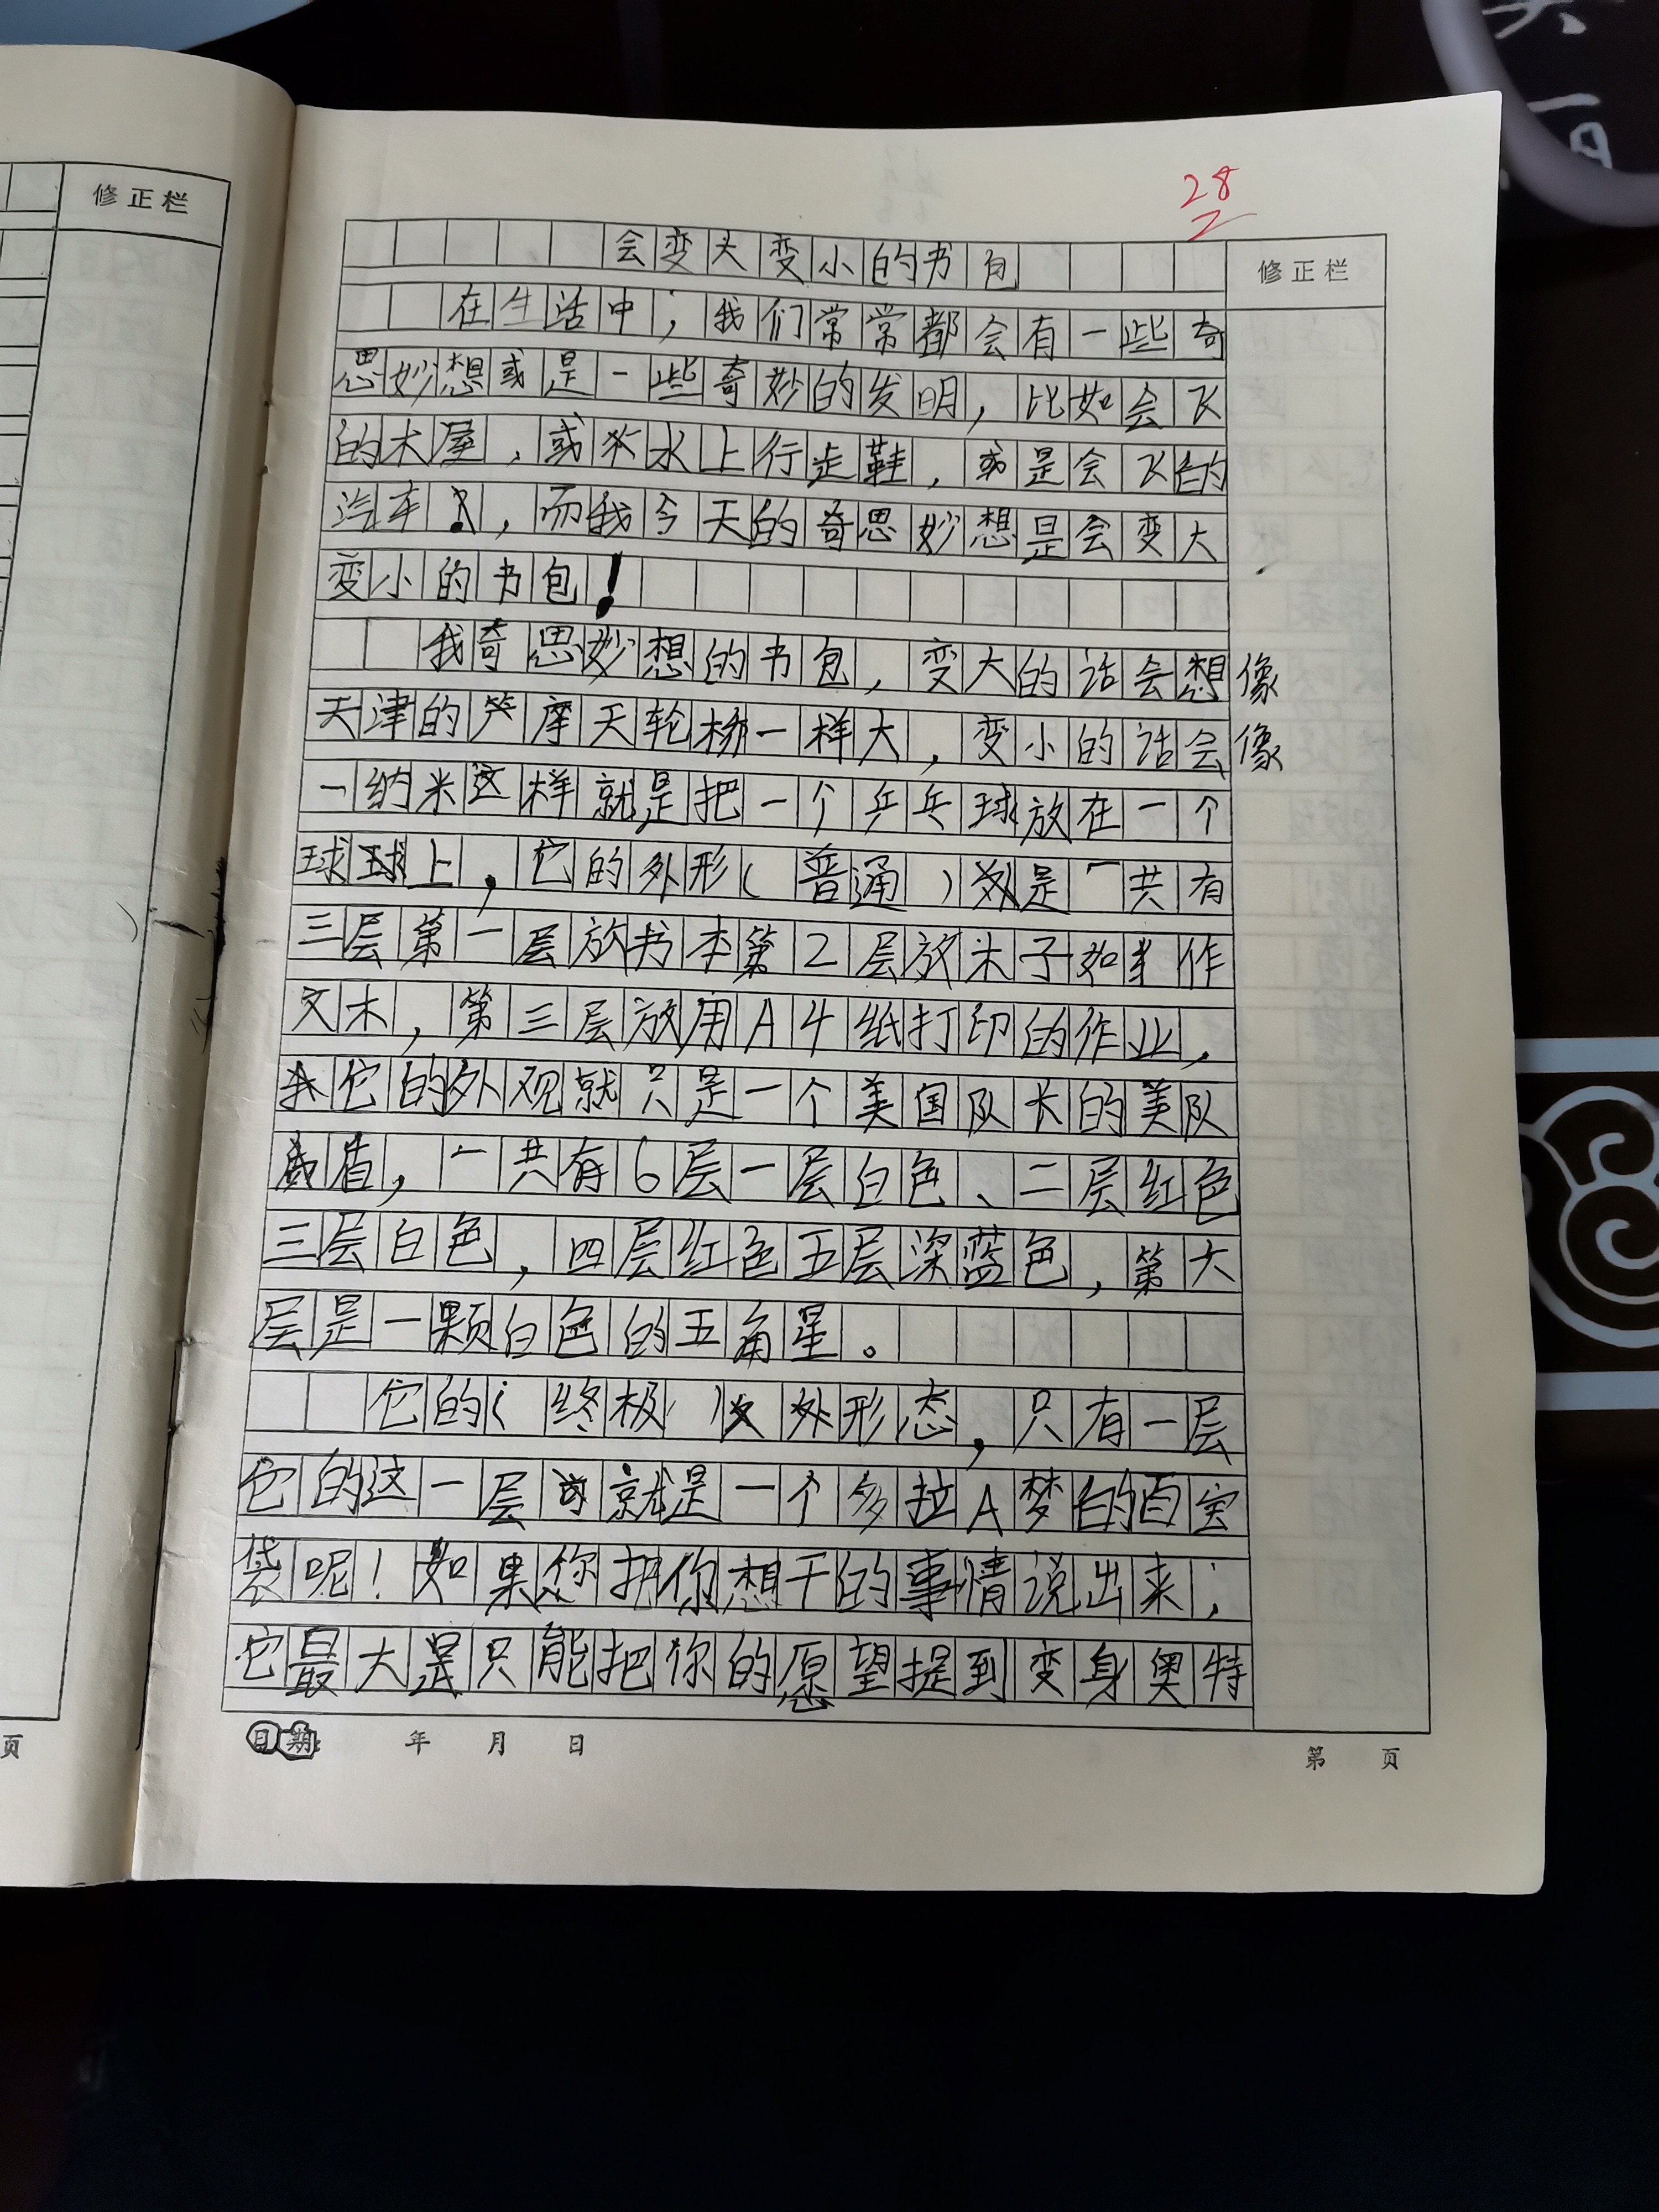 修正栏
28
会变大变小的书包
修正栏
在生活中；我们常常都会有一些奇
思妙想或是一些奇妙的发明，比如会飞
的木屋，或水上行走鞋，或是会飞的
汽车，而我今天的奇思妙想是会变大
变小的书包！
我奇思妙想的书包，变大的话会想像
天津的摩天轮一样大，变小的话会像
一纳米这样就是把一个乒乓球放在一个
球球上，它的外形（普通）是一共有
三层第一层放书本第2层放米子如作
文木，第三层放用A4纸打印的作业，
它的外观就只是一个美国队长的美队
盾，一共有6层一层白色、二层红色
三层白色，四层红色五层深蓝色，第大
层是一颗白色的五角星。
它的（终极）外形态，只有一层
它的这一层就是一个多拉A梦的百宝
袋呢！如果您把你想干的事情说出来；
它最大是只能把你的愿望提到变身奥特
日期： 年 月 日
第 页
页